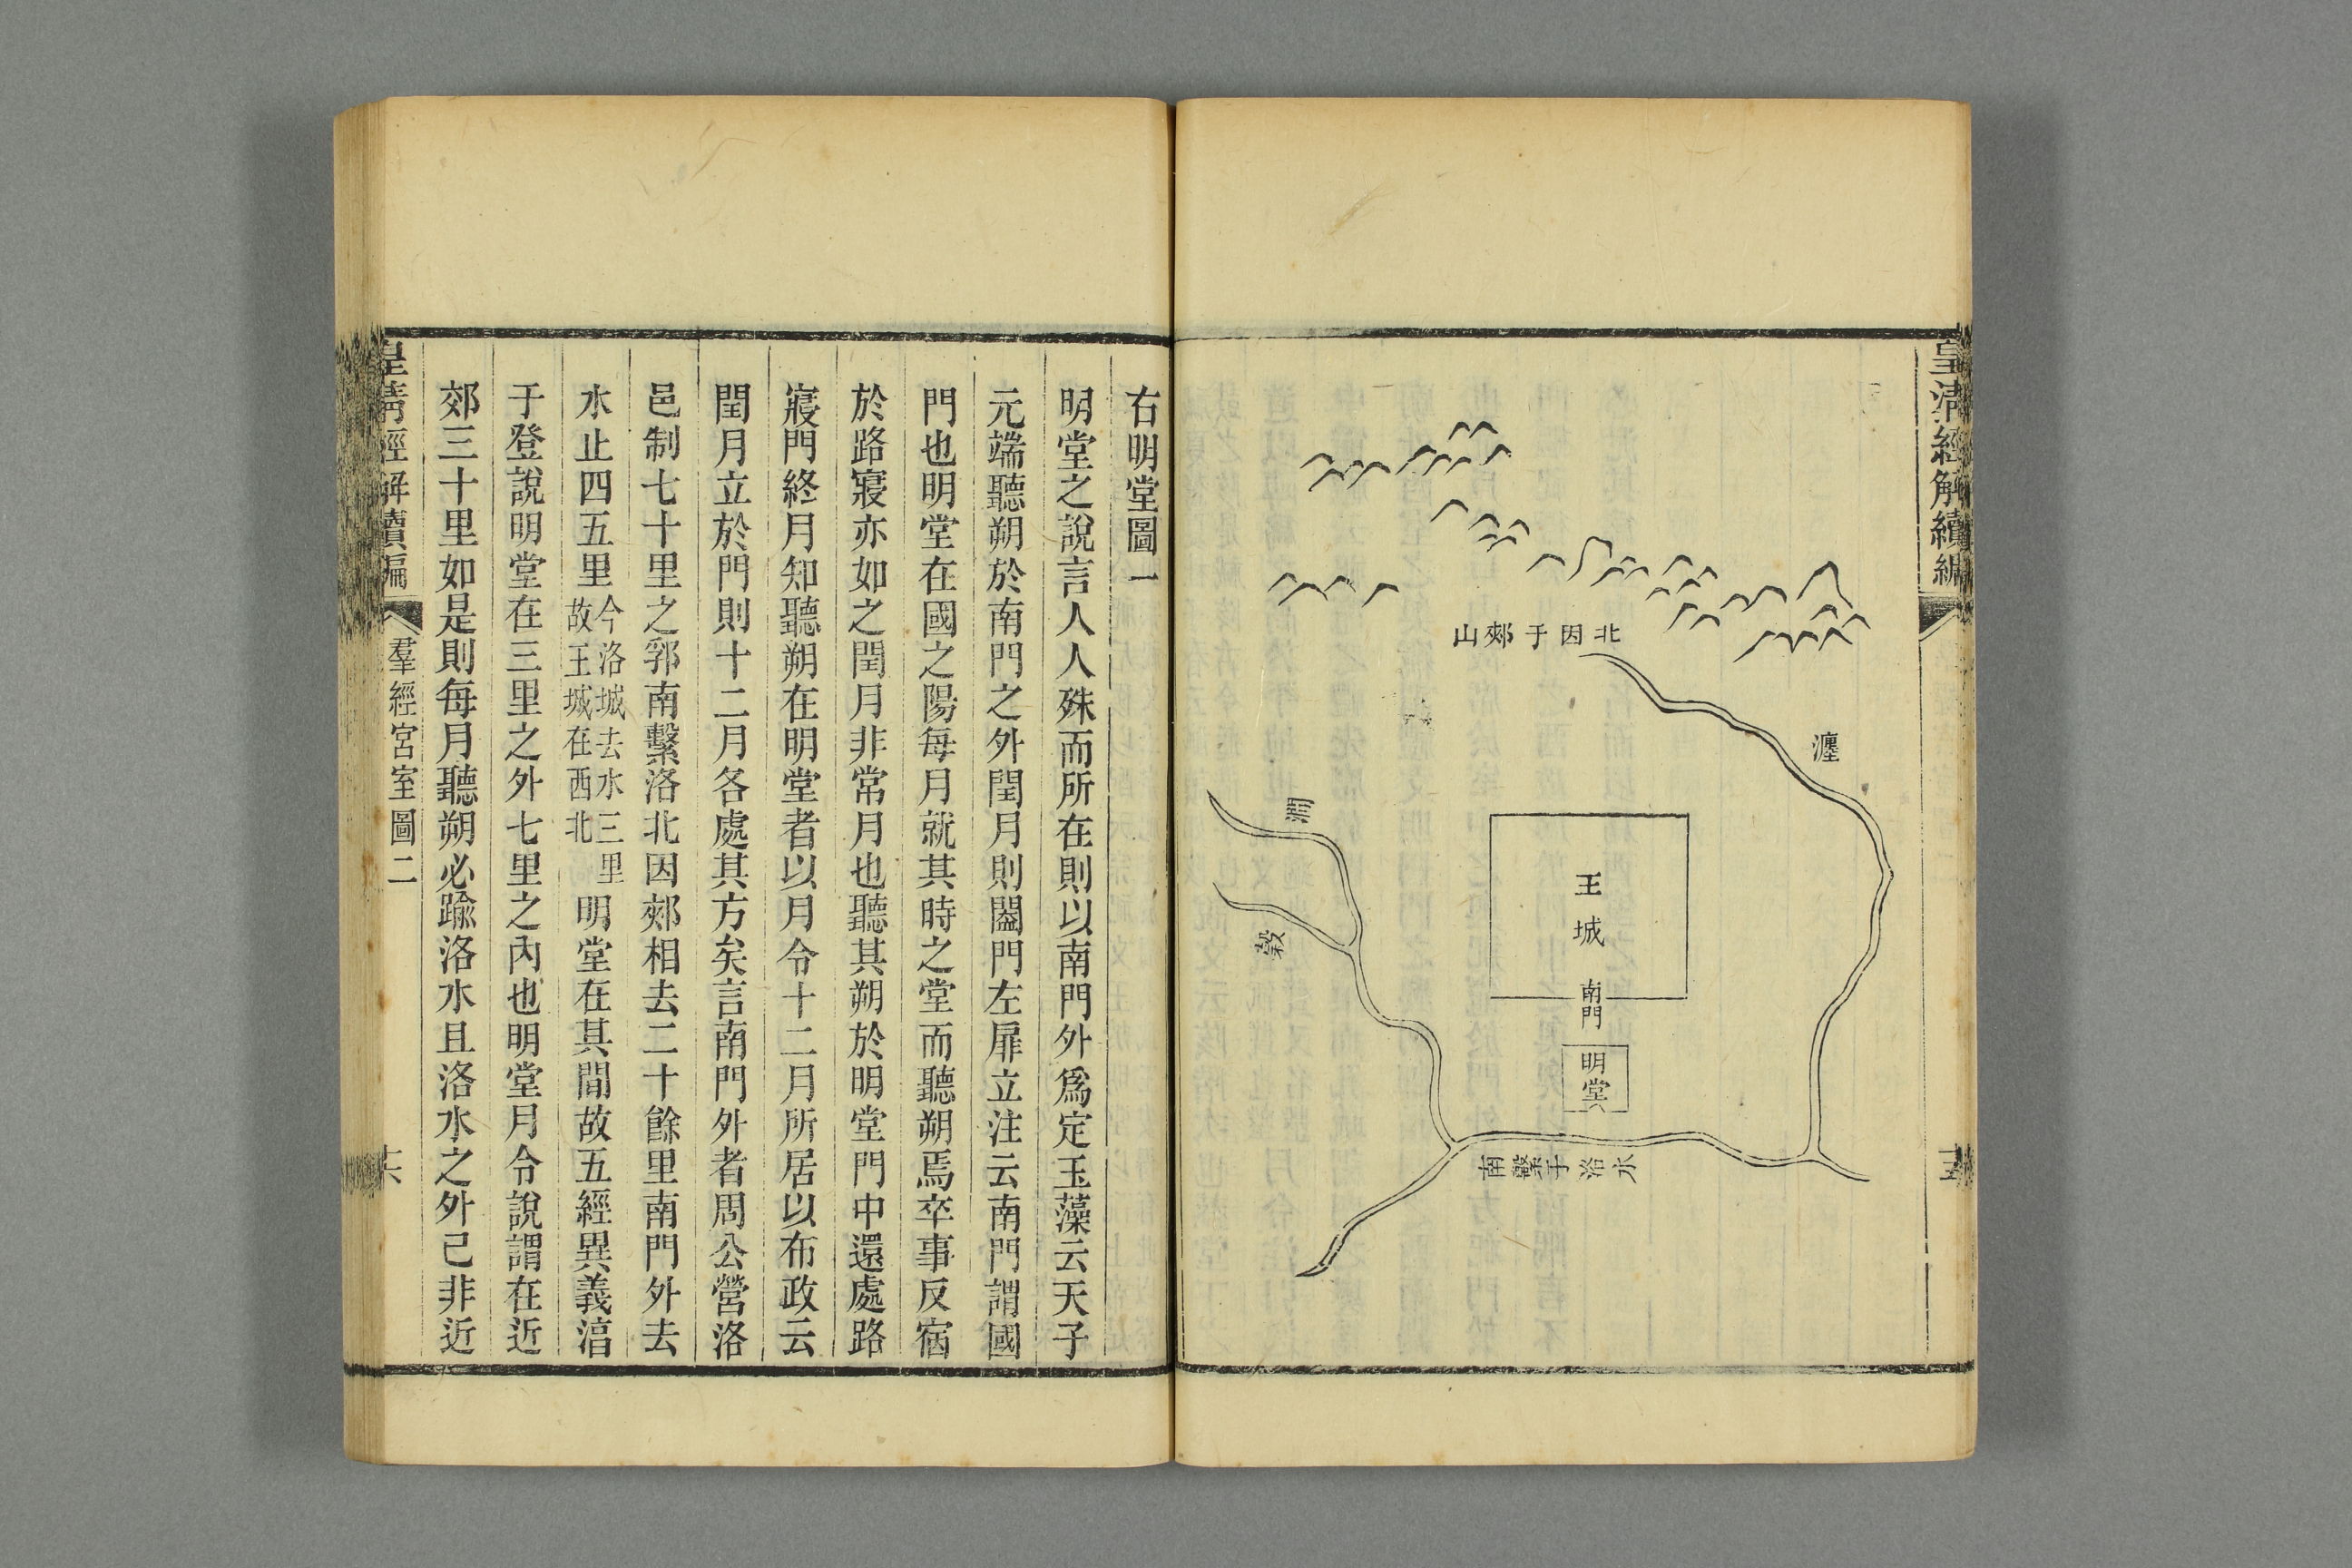 皇清經解續編
北因于郟山
瀍
澗
穀
王城
南門
明堂
南繫于洛水
右明堂圖一
明堂之說言人人殊而所在則以南門外爲定玉藻云天子
元端聽朔於南門之外閏月則闔門左扉立注云南門謂國
門也明堂在國之陽每月就其時之堂而聽朔焉卒事反宿
於路寢亦如之閏月非常月也聽其朔於明堂門中還處路
寢門終月知聽朔在明堂者以月令十二月所居以布政云
閏月立於門則十二月各處其方矣言南門外者周公營洛
邑制七十里之郛南繫洛北因郟相去二十餘里南門外去
水止四五里今洛城去水三里故王城在西北明堂在其間故五經異義湻
于登說明堂在三里之外七里之內也明堂月令說謂在近
郊三十里如是則每月聽朔必踰洛水且洛水之外已非近
皇清經解續編
羣經宮室圖二